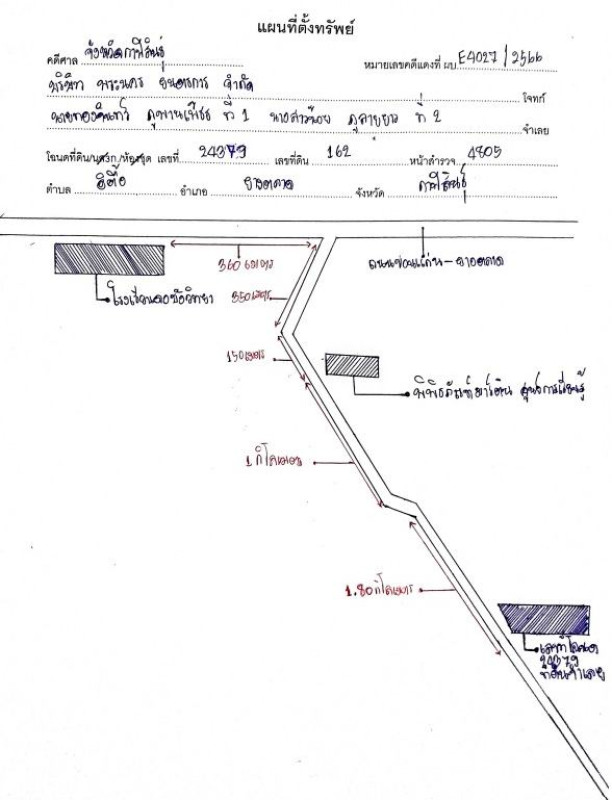 แผนที่ตั้งทรัพย์
คดีศาล จังหวัดกาฬสินธุ์ หมายเลขคดีแดงที่ ผบ. E4027/2566
บริษัท พระนคร ยนตรการ จำกัด โจทก์
นายทองจันทร์ ภูพานเพชร ที่ 1 นางสาวน้อย ที่ 2 จำเลย
โฉนดที่ดิน/นส3ก./ห้องชุด เลขที่ 24379 เลขที่ดิน 162 หน้าสำรวจ 4805
ตำบล อิตื้อ อำเภอ ยางตลาด จังหวัด กาฬสินธุ์
360 เมตร
ถนนขอนแก่น-ยางตลาด
350 เมตร
150 เมตร
พิพิธภัณฑ์ ศูนย์การเรียนรู้
1 กิโลเมตร
1.80 กิโลเมตร
24379